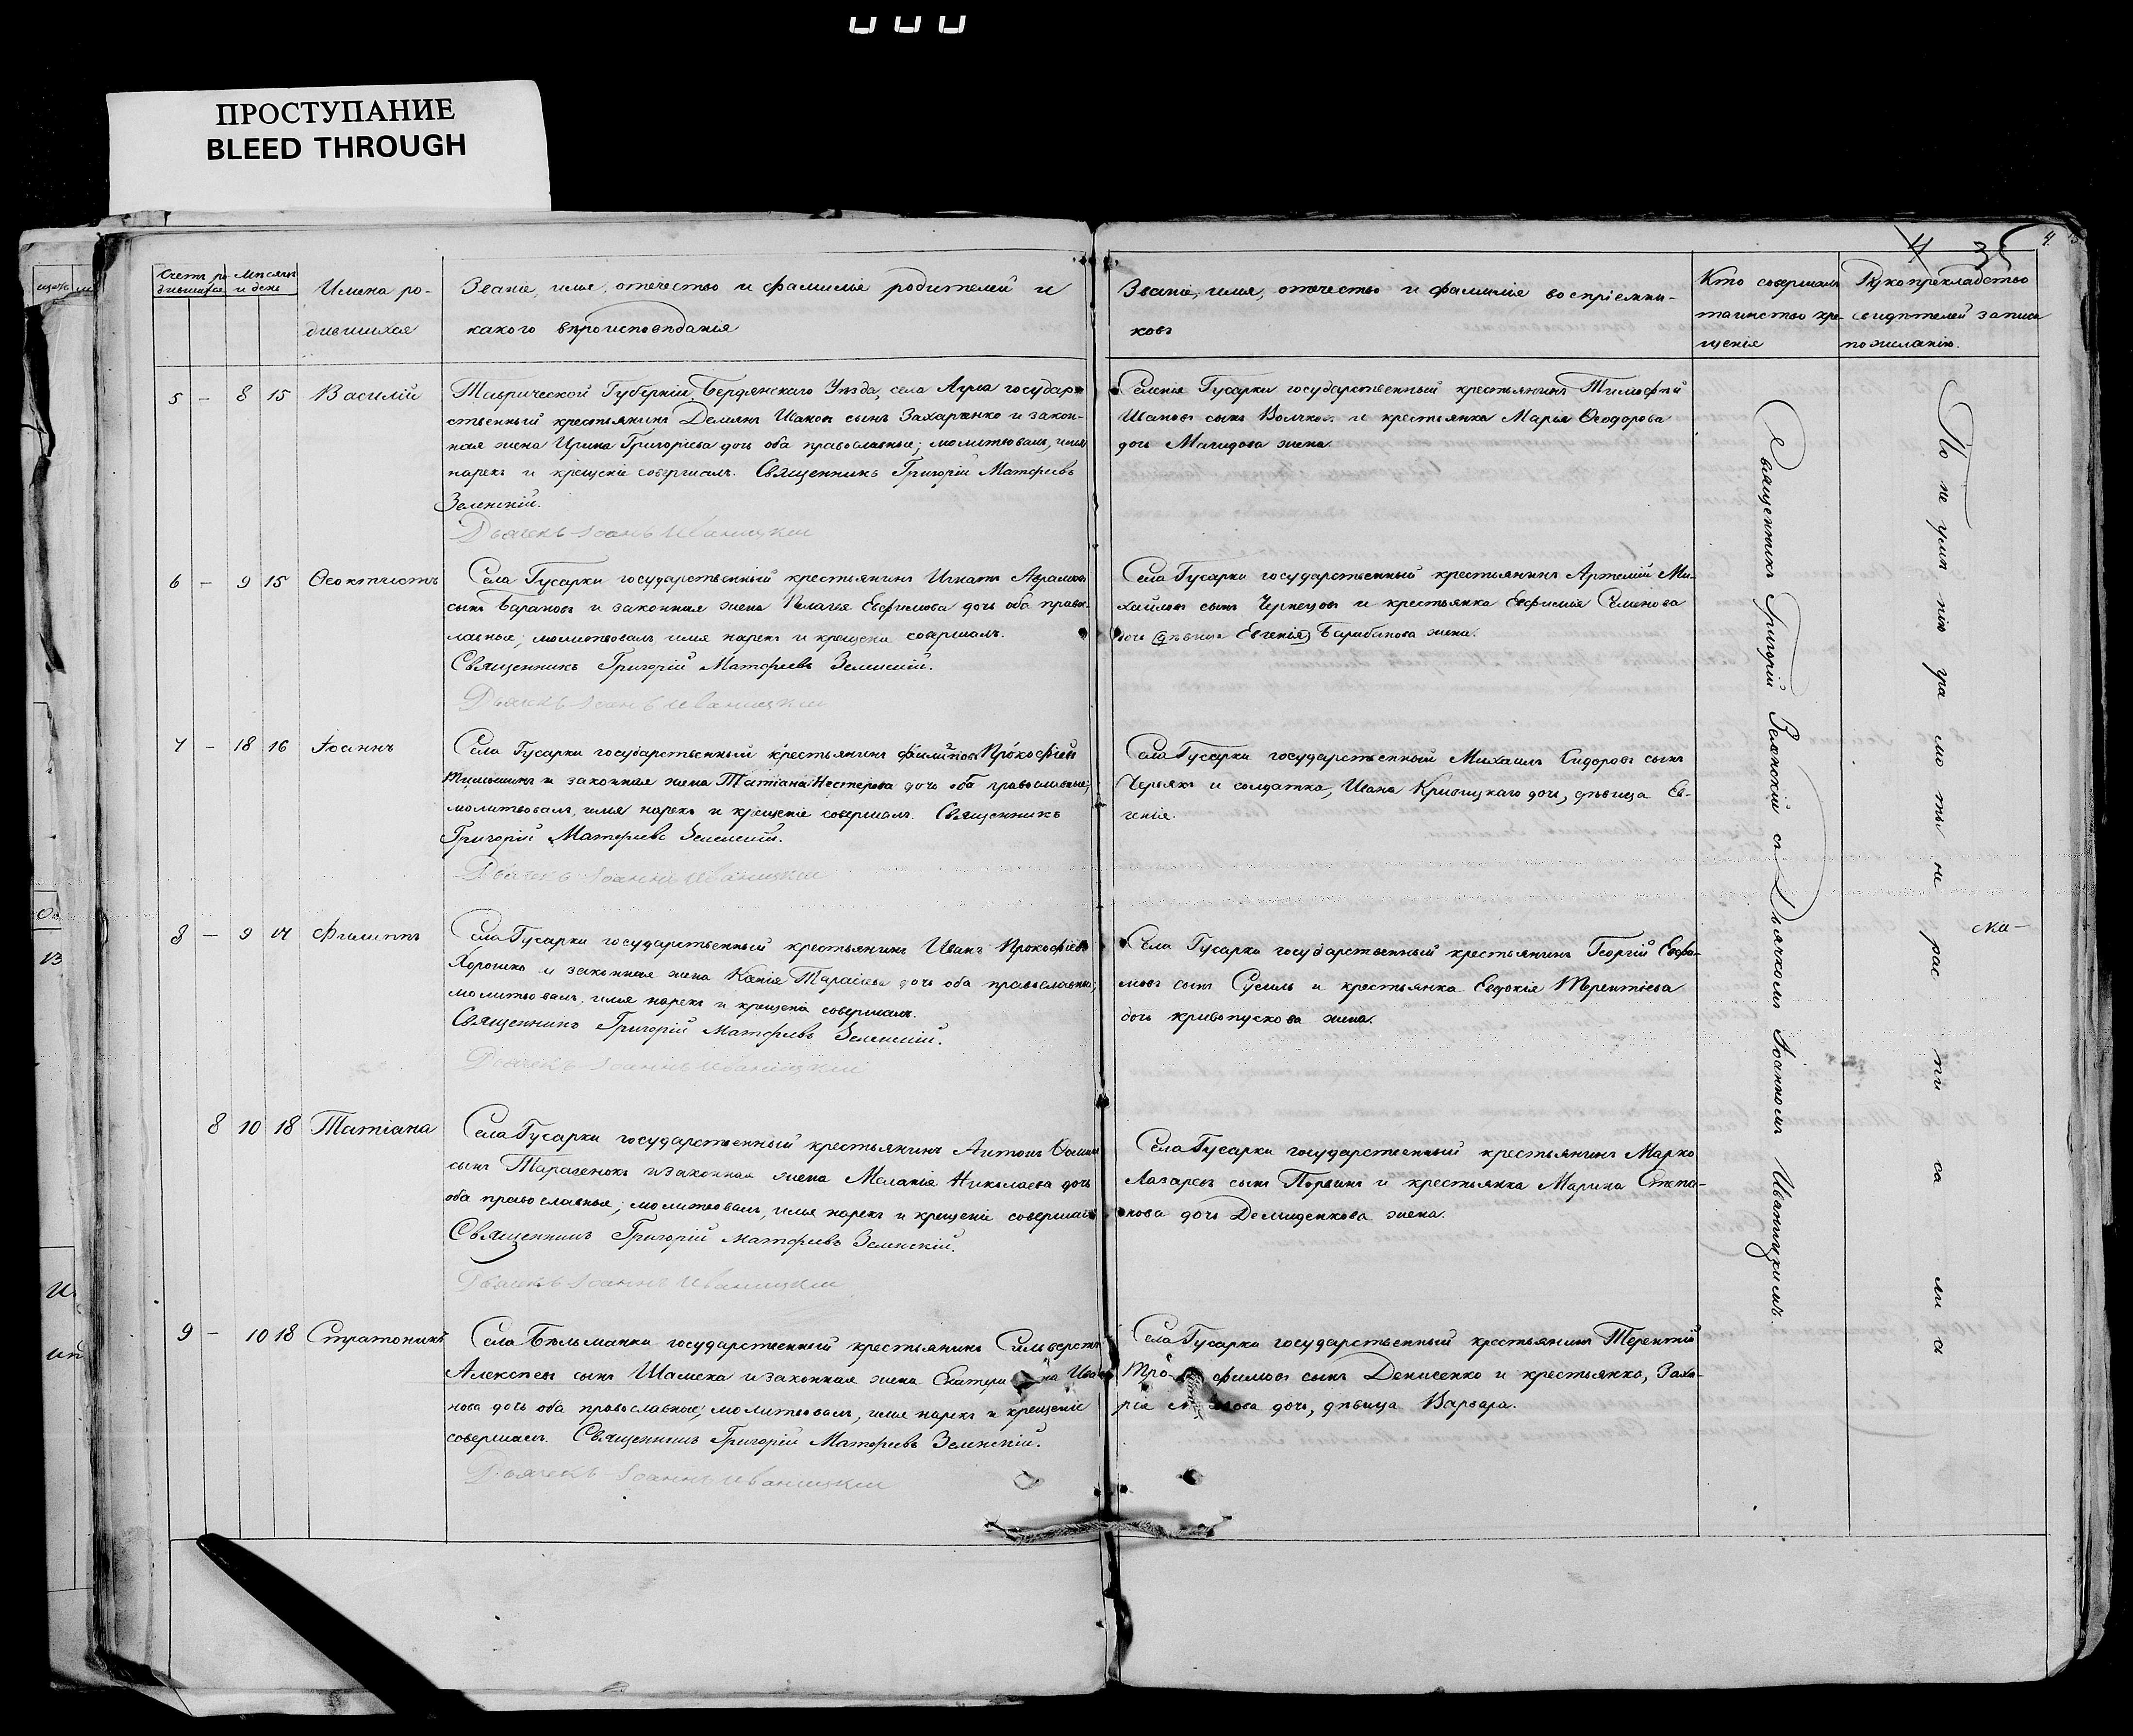 ПРОСТУПАНИЕ
BLEED THROUGH
4 35 4.
Счетъ ро-
дившихся
Мѣсяцъ
и день
Имена ро-
дившихся
Званіе, имя, отчество и фамилія родителей и
какого вѣроисповѣданія
Званіе, имя, отчество и фамилія воспріемни-
ковъ
Кто совершалъ
таинство кре-
щенія
Рукоприкладство
свидѣтелей записи
по желанію.
5 – 8 15 Василій
Таврической Губерніи, Бердянскаго Уѣзда, села государ-
ственный крестьянинъ Деміянъ Ивановъ сынъ Захарченко и закон-
ная жена Ирина Григоріева дочь оба православные; молитвовалъ, имя
нарекъ и крещеніе совершалъ. Священникъ Григорій Матфеевъ
Зеленскій.
Дьячекъ Іоаннъ Иваницкій
Селенія Гусарки государственный крестьянинъ Тимофей
Ивановъ сынъ Волчков и крестьянка Марія Ѳеодорова
дочь жена.
6 – 9 15 Ѳеоктистъ
Села Гусарки государственный крестьянинъ Игнатъ Аврамовъ
сынъ Барановъ и законная жена Пелагея Евфимова дочь оба право-
славные; молитвовалъ имя нарекъ и крещеніе совершалъ.
Священникъ Григорій Матфеевъ Зеленскій.
Дьячекъ Іоаннъ Иваницкій
Села Гусарки государственный крестьянинъ Артемій Ми-
хайловъ сынъ Чернецовъ и крестьянка Евфимія Семенова
дочь (дѣвица Евгенія) Барабанова жена.
7 – 18 16 Іоаннъ
Села Гусарки государственный крестьянинъ Филиповъ Прокофій
и законная жена Татіана Нестерова дочь оба православные;
молитвовалъ, имя нарекъ и крещеніе совершалъ. Священникъ
Григорій Матфеевъ Зеленскій.
Дьячекъ Іоаннъ Иваницкій
Села Гусарки государственный Михаилъ Сидоровъ сынъ
Червякъ и солдатка, Ивана Кривицкаго дочь, дѣвица Ев-
генія.
8 – 9 17 Филиппъ
Села Гусарки государственный крестьянинъ Иванъ Прокофіевъ
Хорошко и законная жена Тарасіева дочь оба православные;
молитвовалъ, имя нарекъ и крещеніе совершалъ.
Священникъ Григорій Матфеевъ Зеленскій.
Дьячекъ Іоаннъ Иваницкій
Села Гусарки государственный крестьянинъ Георгій Евфи-
мовъ сынъ и крестьянка Евдокія Терентіева
дочь Кривопускова жена.
8 10 18 Татіана
Села Гусарки государственный крестьянинъ Антонъ
сынъ и законная жена Меланія Николаева дочь
оба православные; молитвовалъ, имя нарекъ и крещеніе совершалъ
Священникъ Григорій Матфеевъ Зеленскій.
Дьячекъ Іоаннъ Иваницкій
Села Гусарки государственный крестьянинъ Марко
Лазаревъ сынъ и крестьянка Марина Степа-
нова дочь Демиденкова жена.
9 – 10 18 Стратоникъ
Села Бѣльманки государственный крестьянинъ Сильверстъ
Алексѣевъ сынъ Шамека и законная жена Екатерина Ива-
нова дочь оба православные; молитвовалъ, имя нарекъ и крещеніе
совершалъ. Священникъ Григорій Матфеевъ Зеленскій.
Дьячекъ Іоаннъ Иваницкій
Села Гусарки государственный крестьянинъ Терентій
Трофимовъ сынъ Денисенко и крестьянка, Заха-
рія дочь, дѣвица Варвара.
Священникъ Григорій Зеленскій съ Дьячкомъ Іоанномъ Иваницкимъ.
По не умѣ нію гра мо ты не рас пи са ли сь